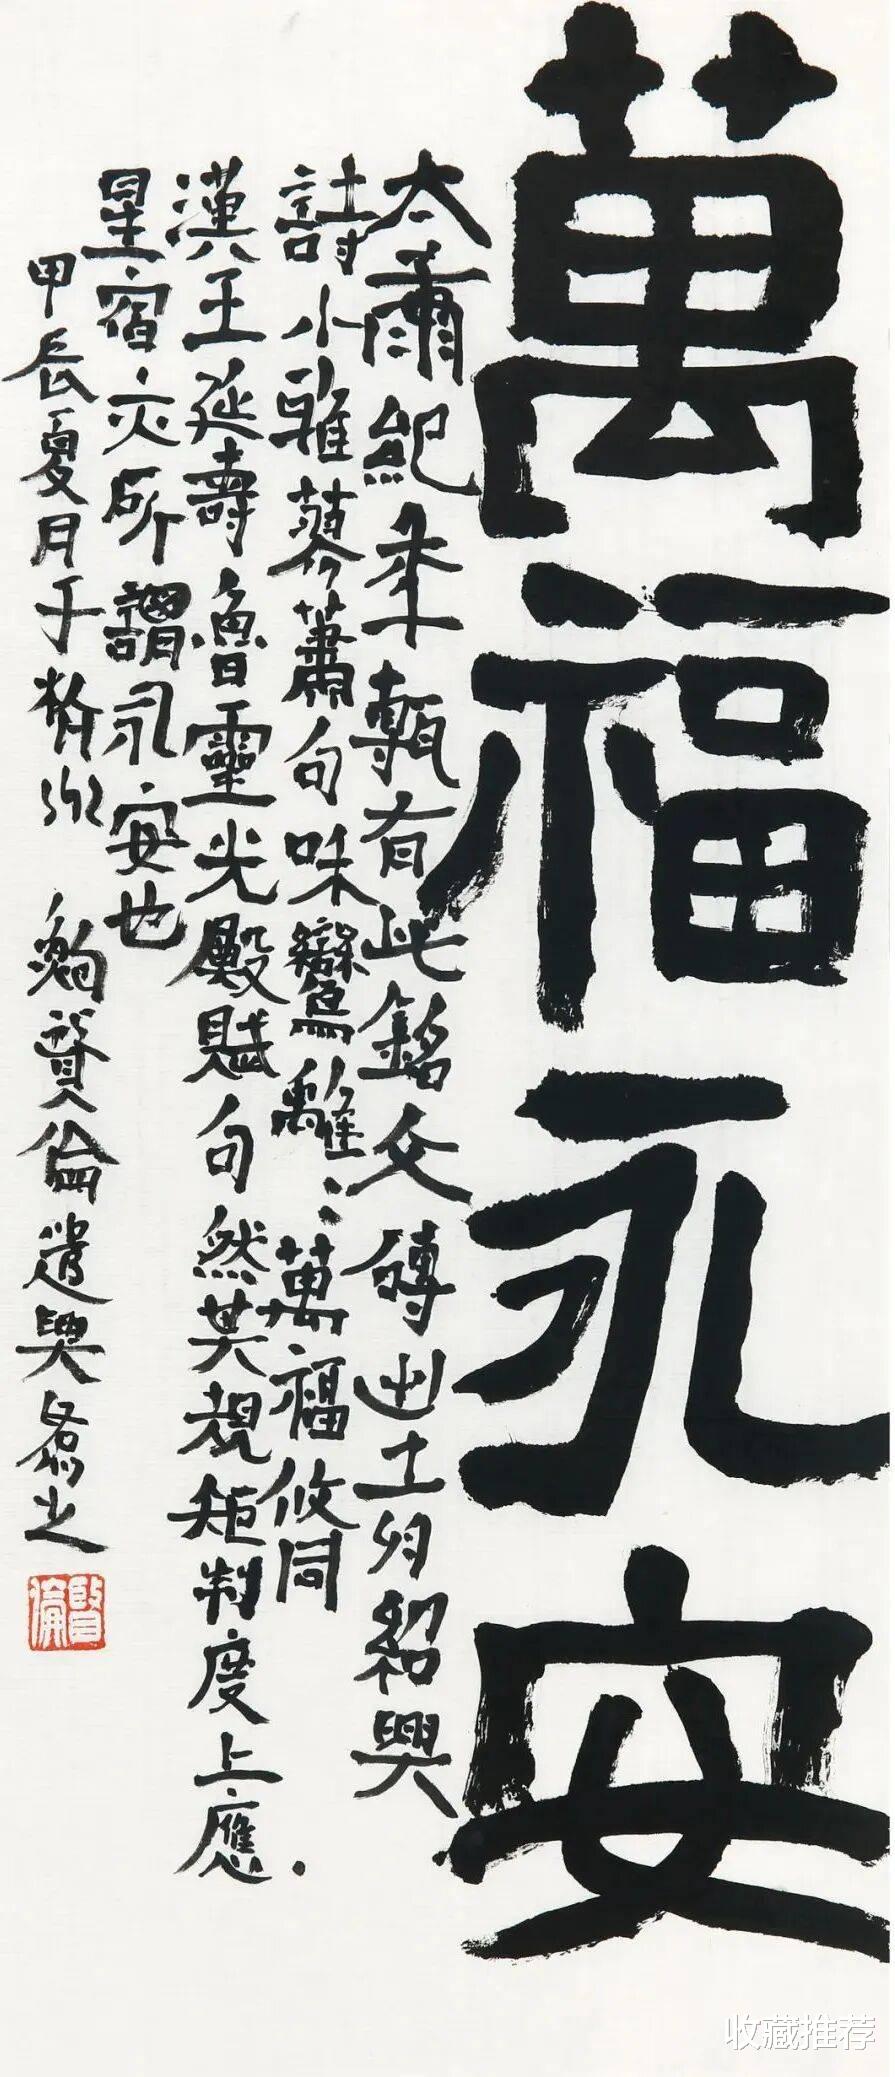 萬福永安
太康紀秊甎有此銘文磚出土於紹興
詩小雅蓼蕭句咊鸞雝〻萬福攸同
漢王延壽魯靈光殿賦句然其規矩制度上應
星宿亦所謂永安也
甲辰夏月于 鮑賢倫遣興書之
賢倫
收藏推荐